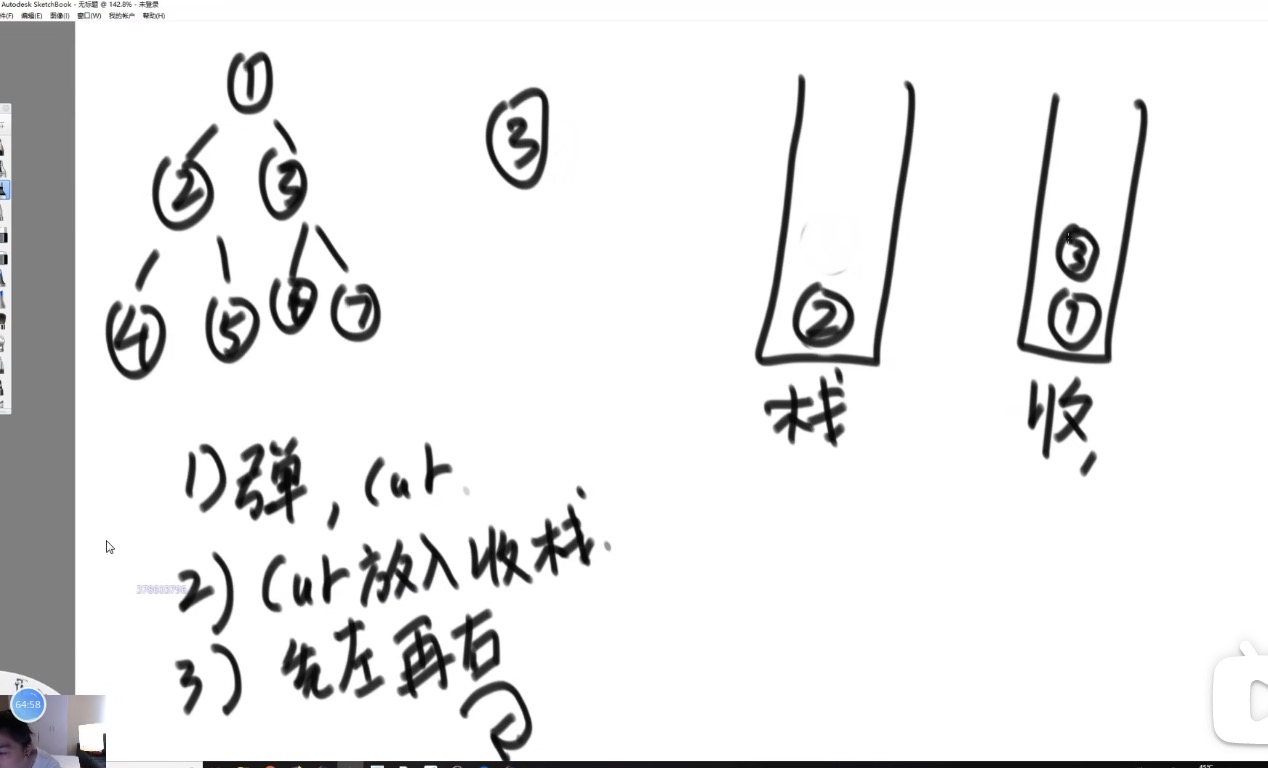 Autodesk SketchBook - 无标题 @ 142.8% - 未登录
件(F) 编辑(E) 图像(I) 窗口(W) 我的帐户 帮助(H)
①
② ③
④ ⑤ ⑥ ⑦
③
②
栈
③
①
收,
1)弹, cur.
2) cur放入收栈.
3) 先左再右
64:58
45℃